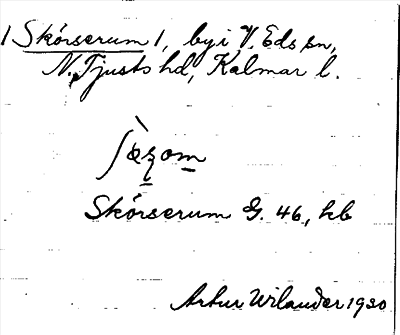 / Skörserum /, by i V. Eds sn,
N. Tjusts hd, Kalmar l.
Skörserum G. 46, hb
Artur Wilander 1920